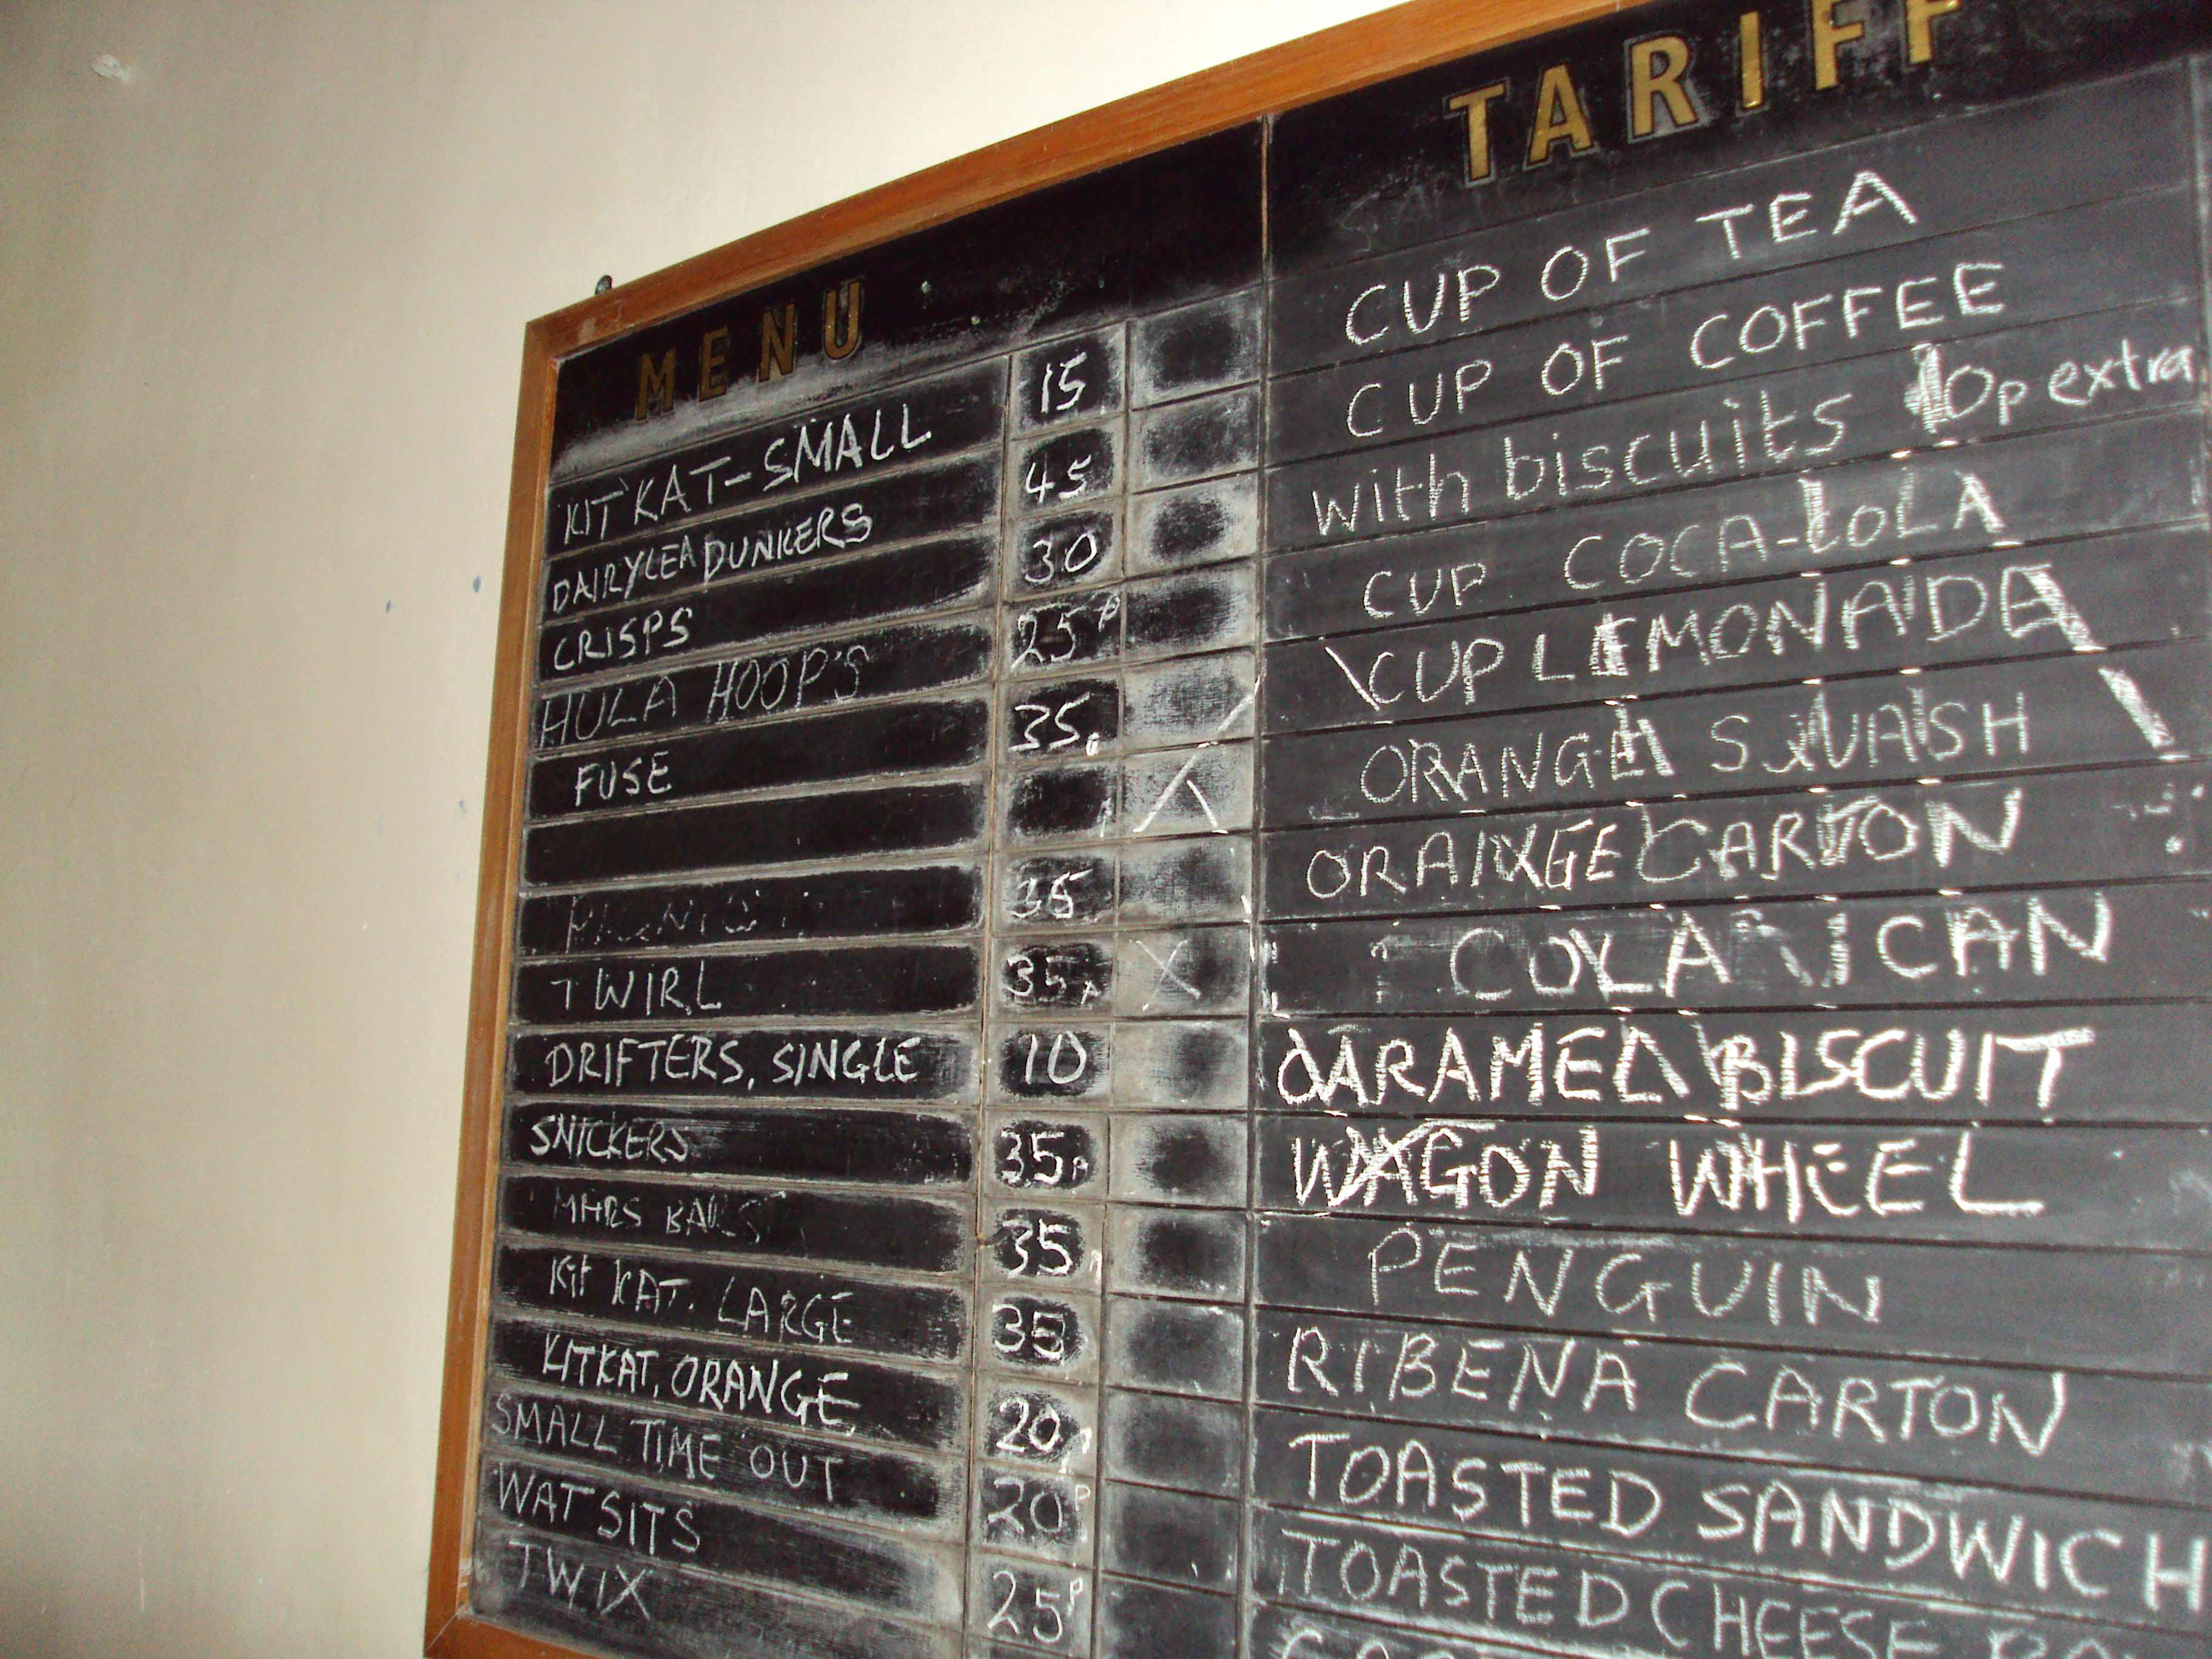 MENU
KIT KAT-SMALL 15
DAIRYLEA DUNKERS 45
CRISPS 30
HULA HOOP'S 25P
FUSE 35
35
TWIRL 35P
DRIFTERS, SINGLE 10
SNICKERS 35P
MARS BARS 35
Kit KAT. LARGE 35
KITKAT, ORANGE 20
SMALL TIME OUT 20P
WATSITS 25P
TWIX
TARIFF
CUP OF TEA
CUP OF COFFEE
with biscuits 10p extra
CUP COCA-COLA
CUP LEMONADE
ORANGE SQUASH
ORANGE CARTON
COLA CAN
CARAMEL BISCUIT
WAGON WHEEL
PENGUIN
RIBENA CARTON
TOASTED SANDWICH
TOASTED CHEESE